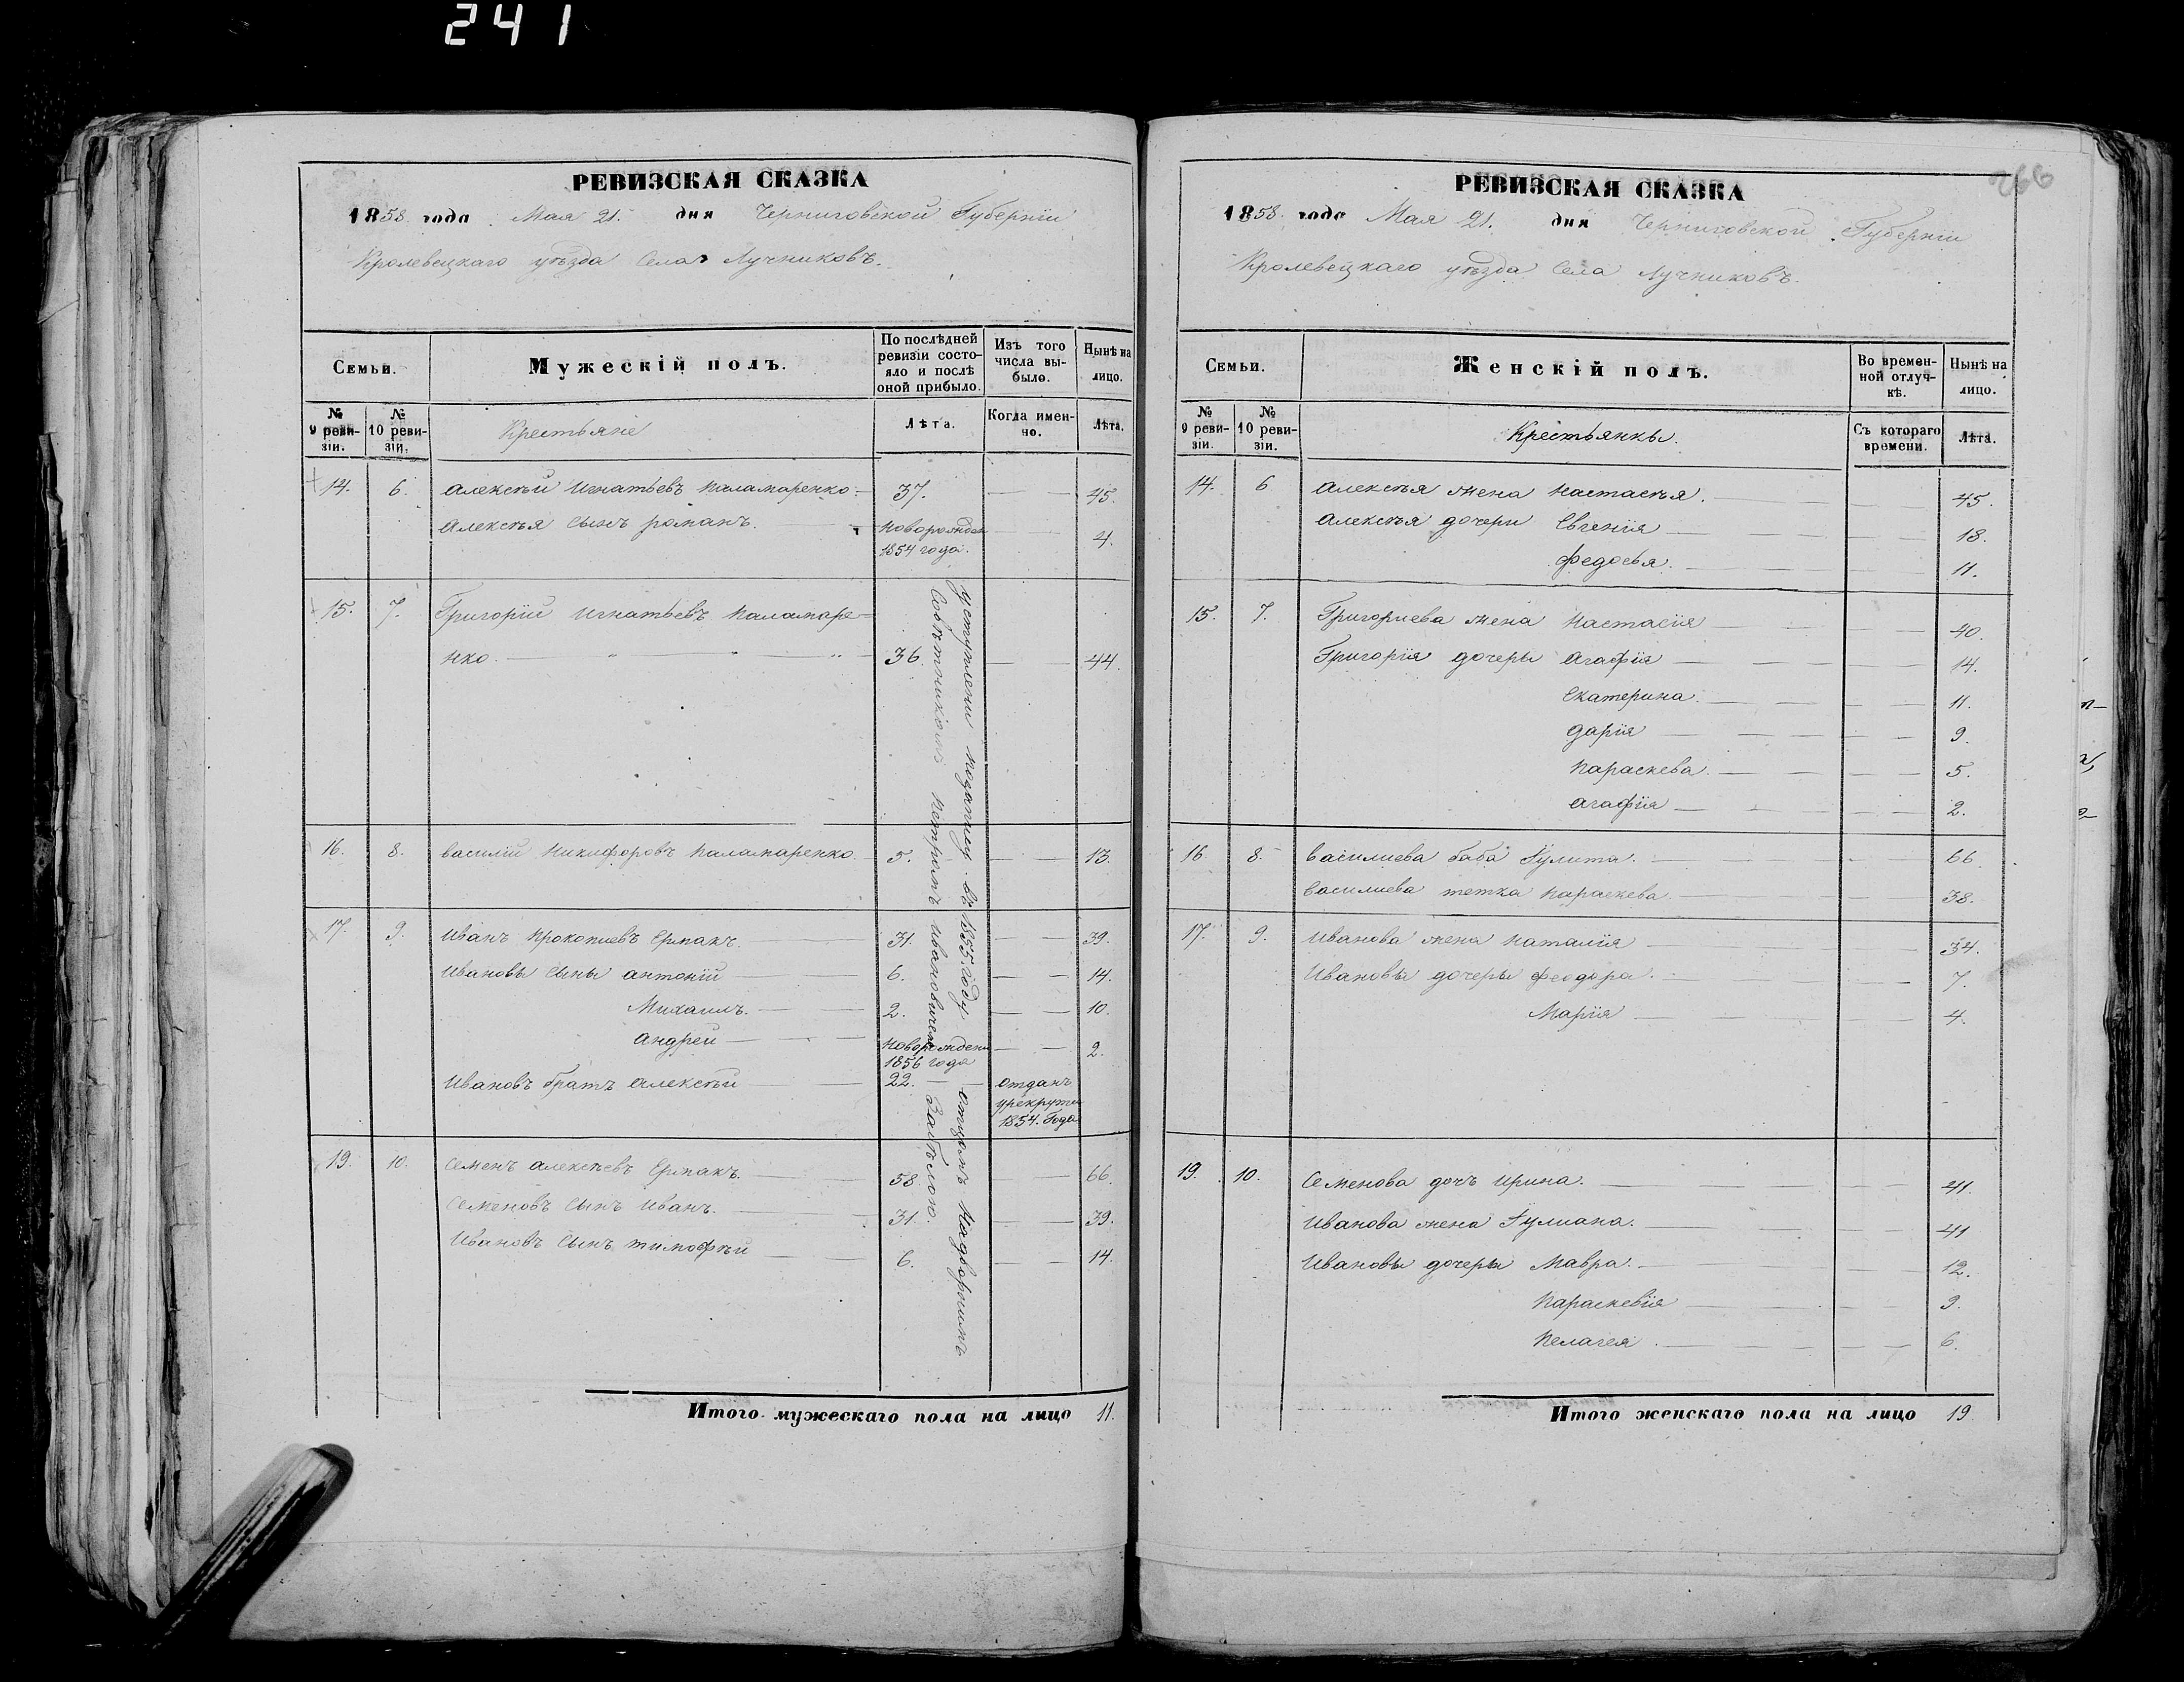 241
РЕВИЗСКАЯ СКАЗКА
1858 года Мая 21. дня Черниговской Губернїи
Кролевецкаго уѣзда Села Лучниковъ.
Семьи.
Мужескій полъ.
По послѣдней ревизіи состояло и послѣ оной прибыло.
Изъ того числа выбыло.
Нынѣ на лицо.
№ 9 ревизіи.
№ 10 ревизіи.
Крестьяне
Лѣта.
Когда именно.
Лѣта.
14. 6. Алексѣй Игнатьевъ Паламаренко. 37. 45.
Алексѣя Сынъ романъ. Новорожден 1854 года. 4.
15. 7. Григорїй Игнатьевъ Паламаре=
нко. 36. 44.
16. 8. Василїй Никифоровъ Паламаренко. 5. 13.
17. 9. Иванъ Прокопиевъ Ермакъ. 31. 39.
Ивановы Сыны антонїй 6. 14.
Михаилъ. 2. 10.
Андрей Новорожденъ 1856 года 2.
Ивановъ братъ Алексѣй 22. отданъ урекруты 1854. Года
19. 10. Семенъ Алексѣевъ Ермакъ. 58 66.
Семеновъ Сынъ Иванъ. 31. 39.
Ивановъ Сынъ тимофѣй 6. 14.
уступлени поданису въ 1855. году Отцомъ Надворнымъ
Совѣтникомъ Петромъ Ивановичемъ Забѣлою.
Итого мужескаго пола на лицо 11.
266
РЕВИЗСКАЯ СКАЗКА
1858. года Мая 21. дня Черниговской Губернїи
Кролевецкаго уѣзда Села Лучниковъ.
Семьи.
Женскій полъ.
Во временной отлучкѣ.
Нынѣ на лицо.
№ 9 ревизіи.
№ 10 ревизіи.
Крестьянкы.
Съ котораго времени.
Лѣта.
14. 6 Алексѣя жена Настасѣя. 45.
Алексѣя дочери Евгенїя 18.
Федосья. 11.
15. 7. Григориева жена Настасїя 40.
Григорїя дочеры Агафїя 14.
Екатерина. 11.
дарїя 9.
Параскева. 5.
Агафїя 2.
16. 8. Василиева баба Гулита. 66.
Василиева тетка Параскева. 38.
17. 9. Иванова жена Наталїя 34.
Ивановы дочеры Феодора. 7.
Марїя 4.
19. 10. Семенова дочъ Ирина. 41.
Иванова жена Гулиана. 41
Ивановы дочеры Мавра. 12.
Параскевїя 9.
Пелагея. 6.
Итого женскаго пола на лицо 19